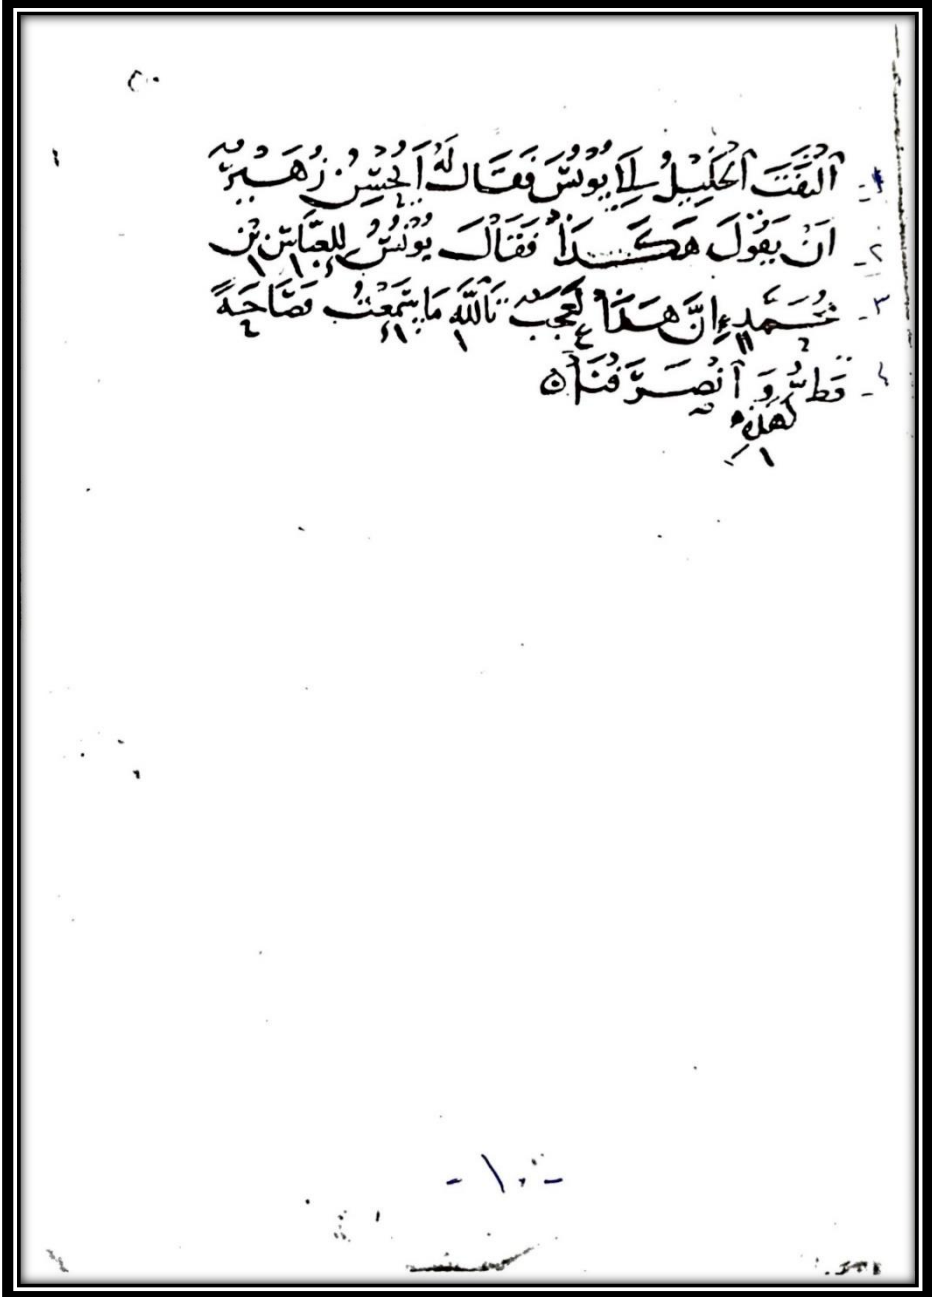 ١- ٱلْتَفَتَ ٱلْخَلِيلُ إِلَى يُونُسَ فَقَالَ لَهُ أَيُحْسِنُ زُهَيْرٌ
٢- أَنْ يَقُولَ هَكَذَا فَقَالَ يُونُسُ لِلْعَبَّاسِ بْنِ
٣- مُحَمَّدٍ إِنَّ هَذَا لَعَجَبٌ تَاللَّهِ مَا سَمِعْتُ فَصَاحَةً
٤- قَطُّ كَهَذِهِ وَٱنْصَرَفْنَا ۝
- ١٠ -